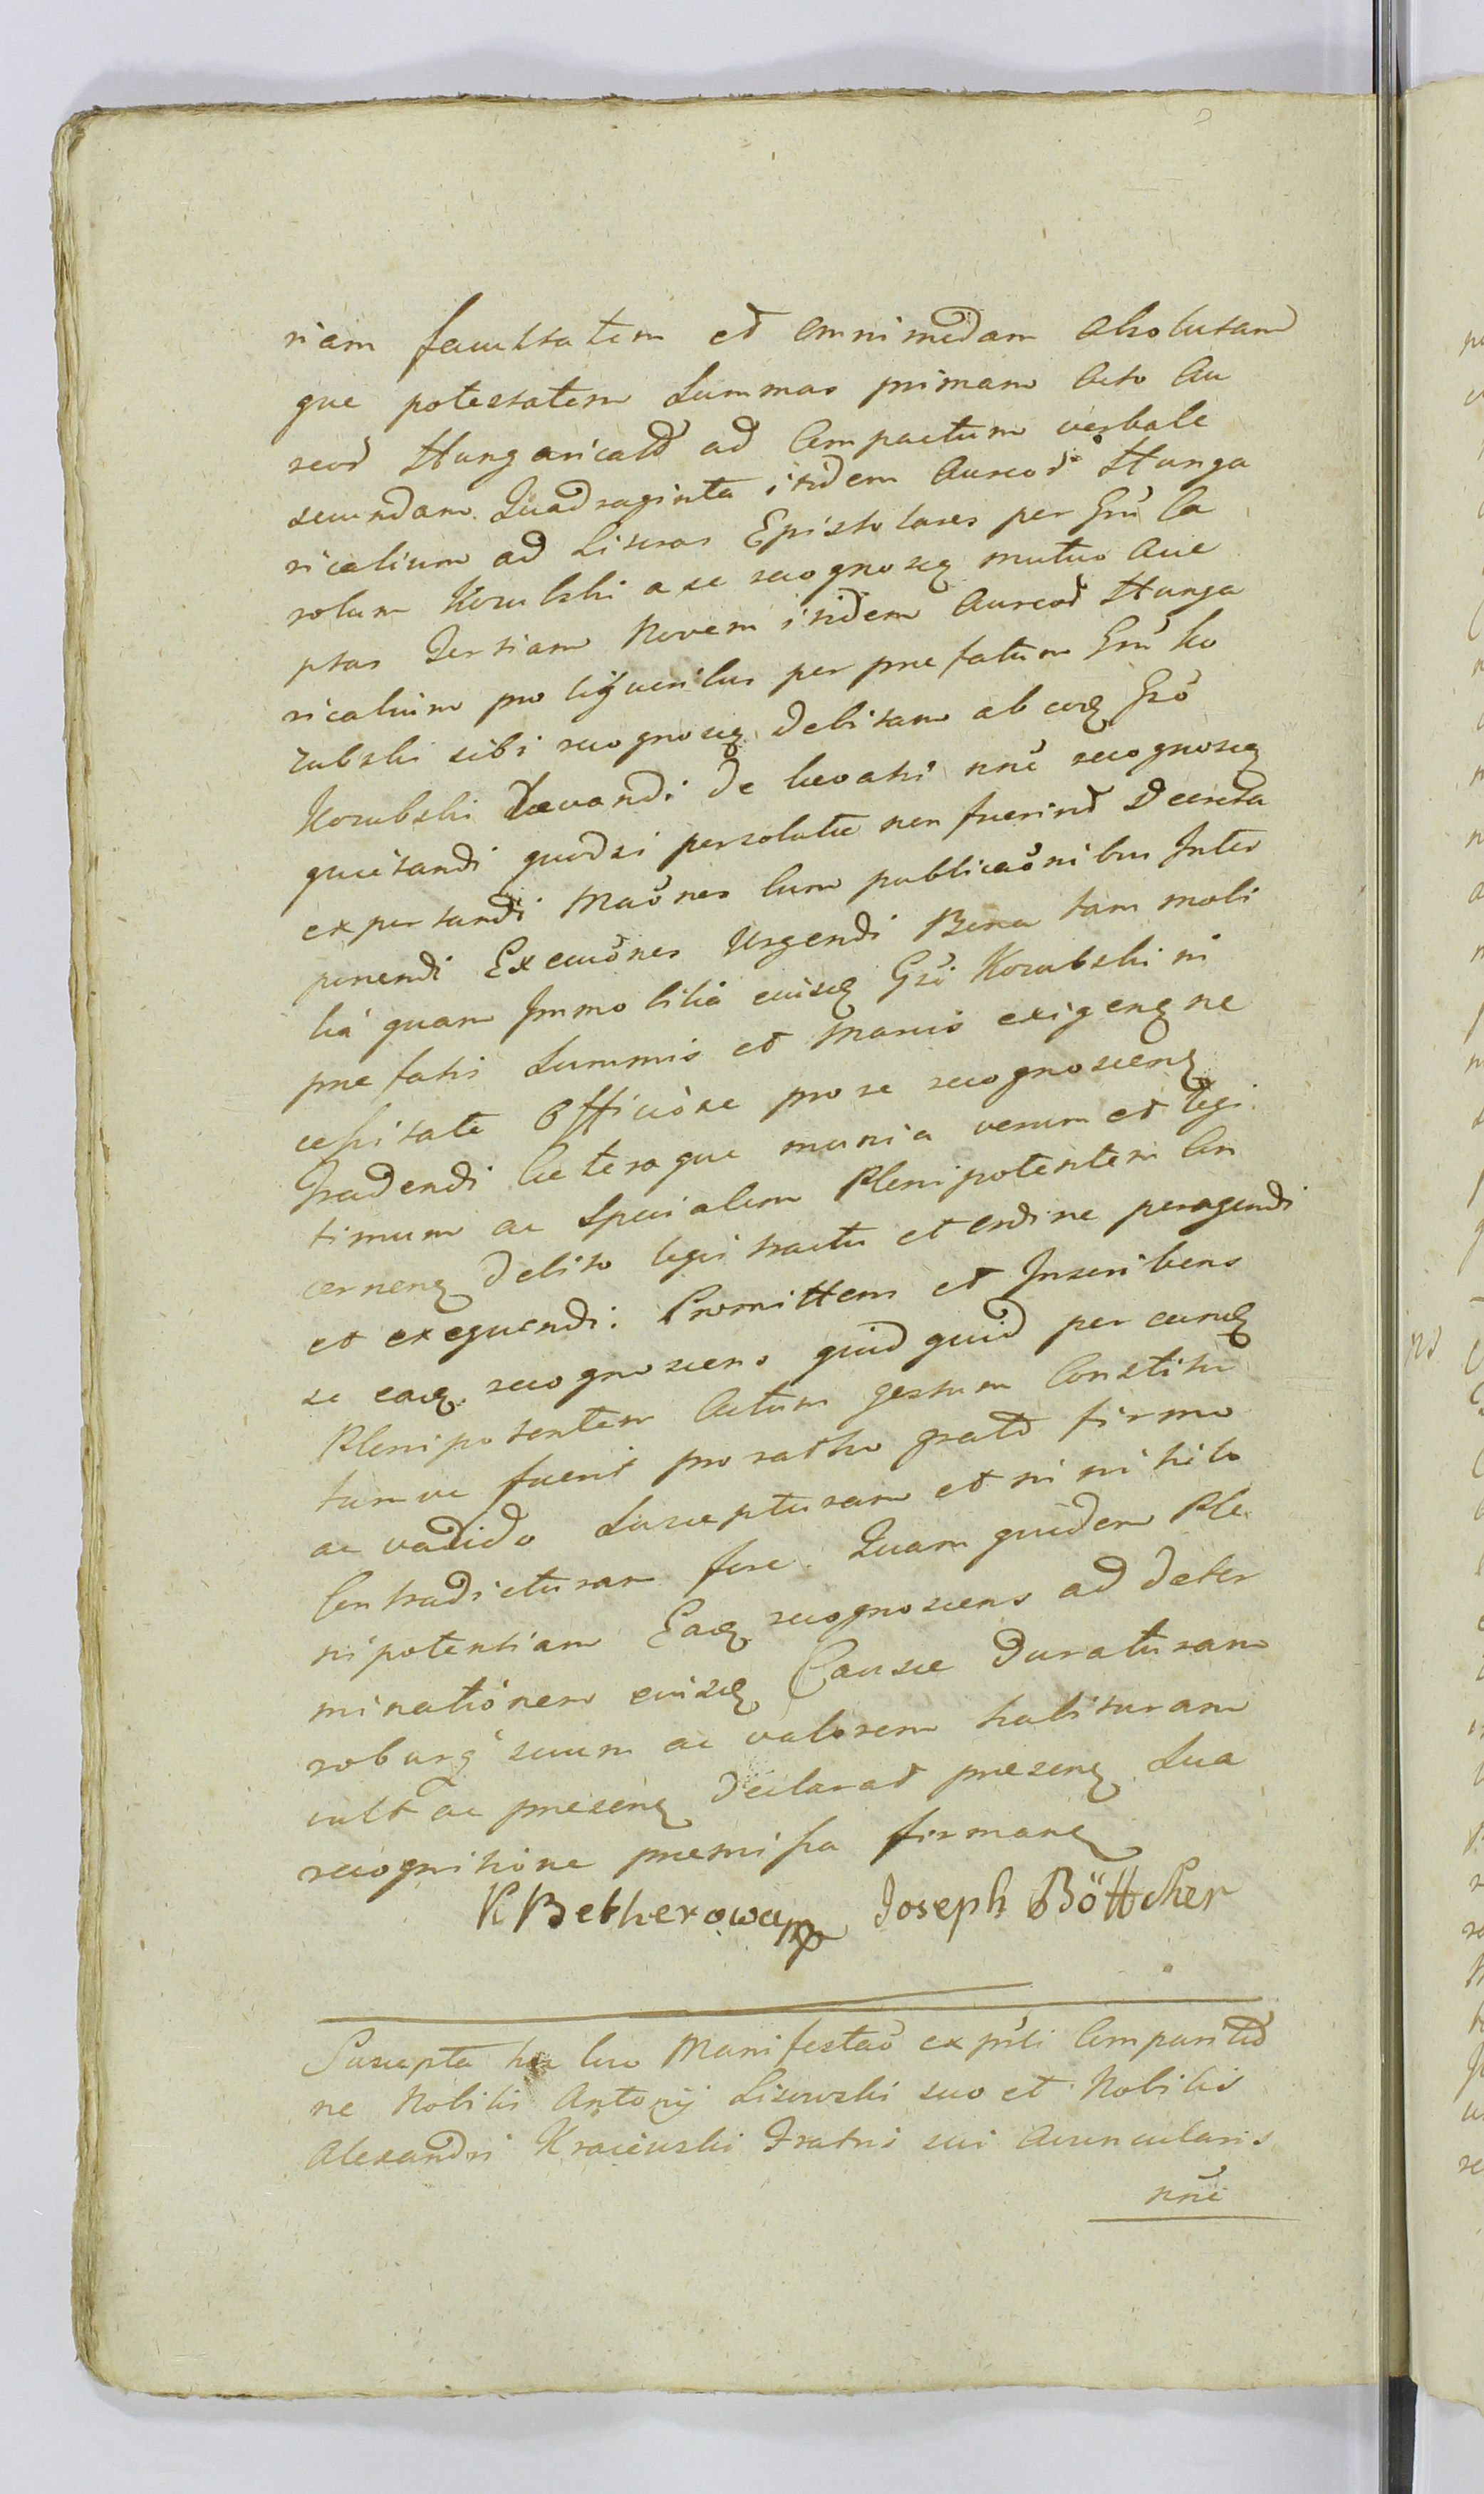 riam facultatem et omnimodam absolutam
que potestatem Summas primam Octo Au
reor̃ Hungaricalium̃ ad Compactum verbale
secundam Quadraginta itidem Aureor̃ Hunga
ricalium ad Literas Epistolares per Gnũ Ca
rolum Kozubski a se recognoscẽ mutuo Acce
ptas Tertiam Novem itidem Aureor̃ Hunga
ricalium pro liquoribus per prefatum Gnũ Ko
zubski sibi recognoscẽ debitam ab eodẽ Gso
Kozubski Levandi de levatis nnẽ recognoscẽ
quietandi quodsi persolutae non fuerint Decreta
expertandi Maõnes Cum publicaõnibus Inter
ponendi Execuõnes Urgendi Bona tam mobi
lia quam Immobilia eiusdẽ Gsi Kozubski in
prefatis Summis et Manis exigenẽ ne
cessitate Officiose pro se recognoscenẽ
Tradendi Caeteraque munia verum et legi
timum ac Specialem Plenipotentem Con
cernenẽ debito legis tractu et ordine peragendi
et exequendi. Promittens et Inscribens
se eadẽ recognoscens quidquid per eundẽ
Plenipotentem Actum gestum Constitu
tumve fuerit pro ratho grato firmo
ac valido Suscepturam et in nihilo
Contradicturam fore. Quam quidem Ple
nipotentiam Eadẽ recognoscens ad deter
minationem eiusdẽ Causae Duraturam
roburq̃ suum ac valorem habituram
vult ac presenẽ declarat presenẽ Sua
recognitione premissa firmanẽ
K Betherowa mp Joseph Böttcher
Suscepta hoc loco Manifestaõ ex pñli Comparitio
ne Nobilis Antonij Lisowski suo et Nobilis
Alexandri Kraiewski Fratris sui Avuncularis
nnẽ